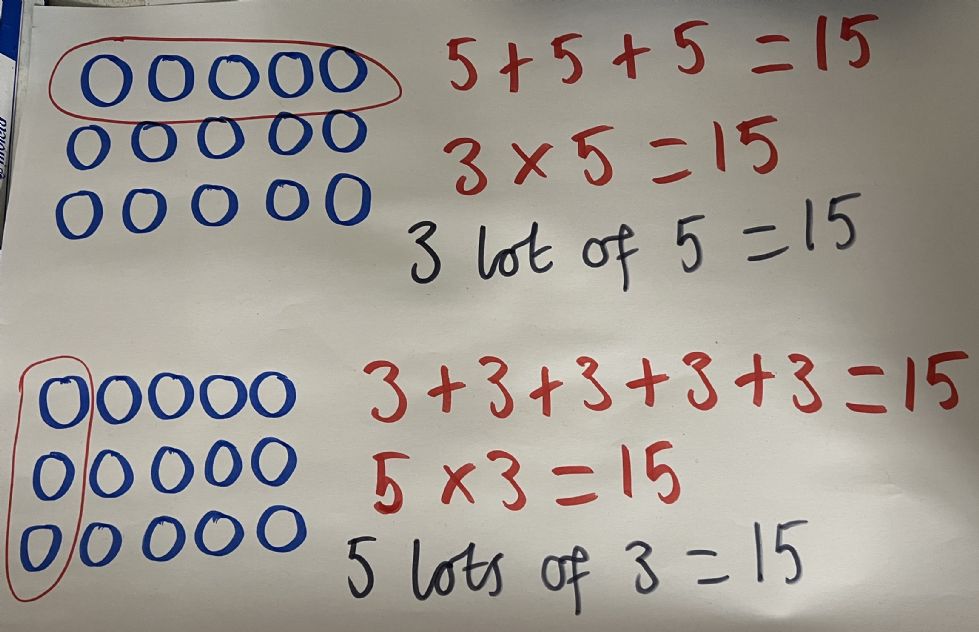 5 + 5 + 5 = 15
3 × 5 = 15
3 lot of 5 = 15
3 + 3 + 3 + 3 + 3 = 15
5 × 3 = 15
5 lots of 3 = 15